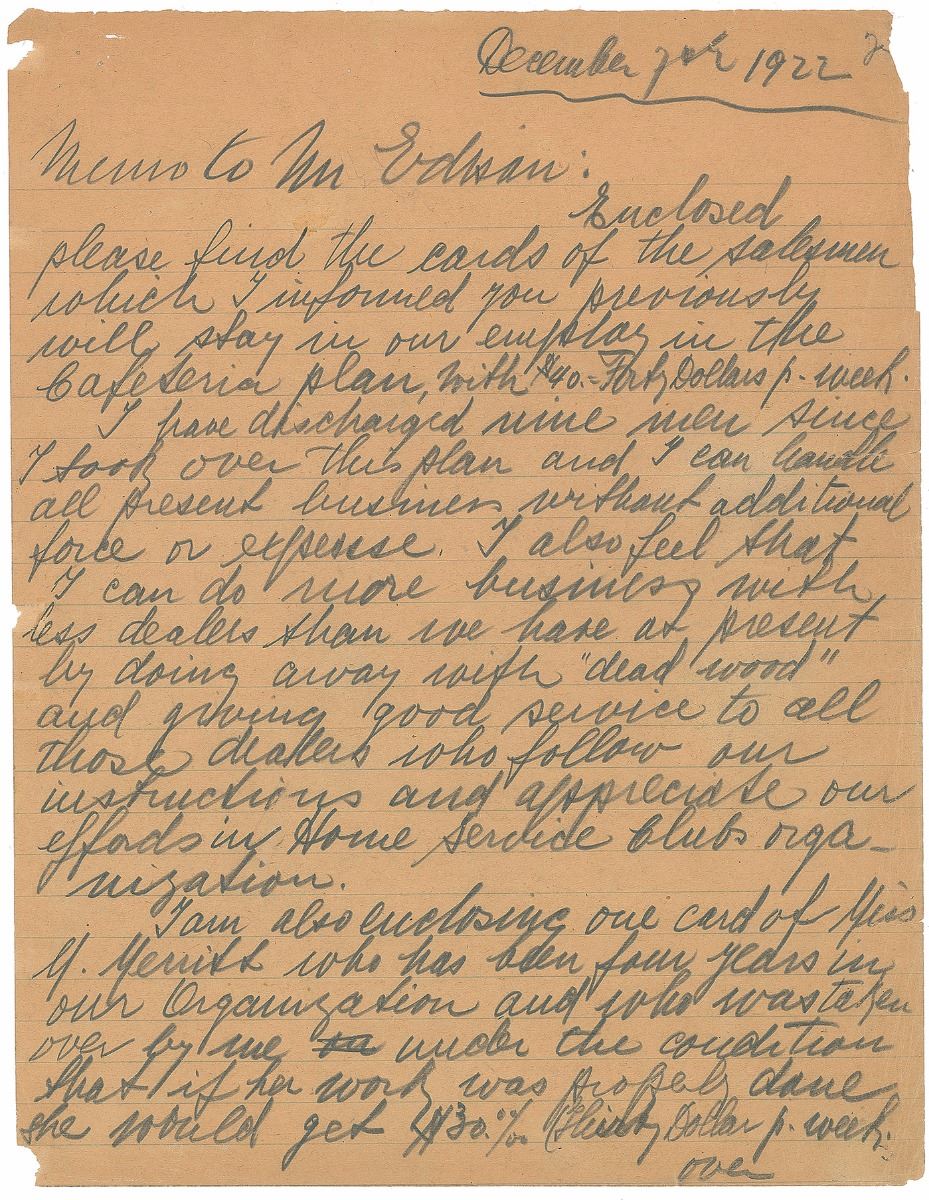 December 7th 1922
Memo to Mr Edison:
Enclosed
please find the cards of the salesmen
which I informed you previously
will stay in our employ in the
Cafeteria plan, with $40.= Forty Dollars p. week.
I have discharged nine men since
I took over this plan and I can handle
all present business without additional
force or expense. I also feel that
I can do more business with
less dealers than we have at present
by doing away with "dead wood"
and giving good service to all
those dealers who follow our
instructions and appreciate our
efforts in Home Service Clubs orga-
nization.
I am also enclosing one card of Miss
M. Merritt who has been four years in
our Organization and who was taken
over by me under the condition
that if her work was properly done
she would get $30.00/00 (Thirty Dollar p. week.
over